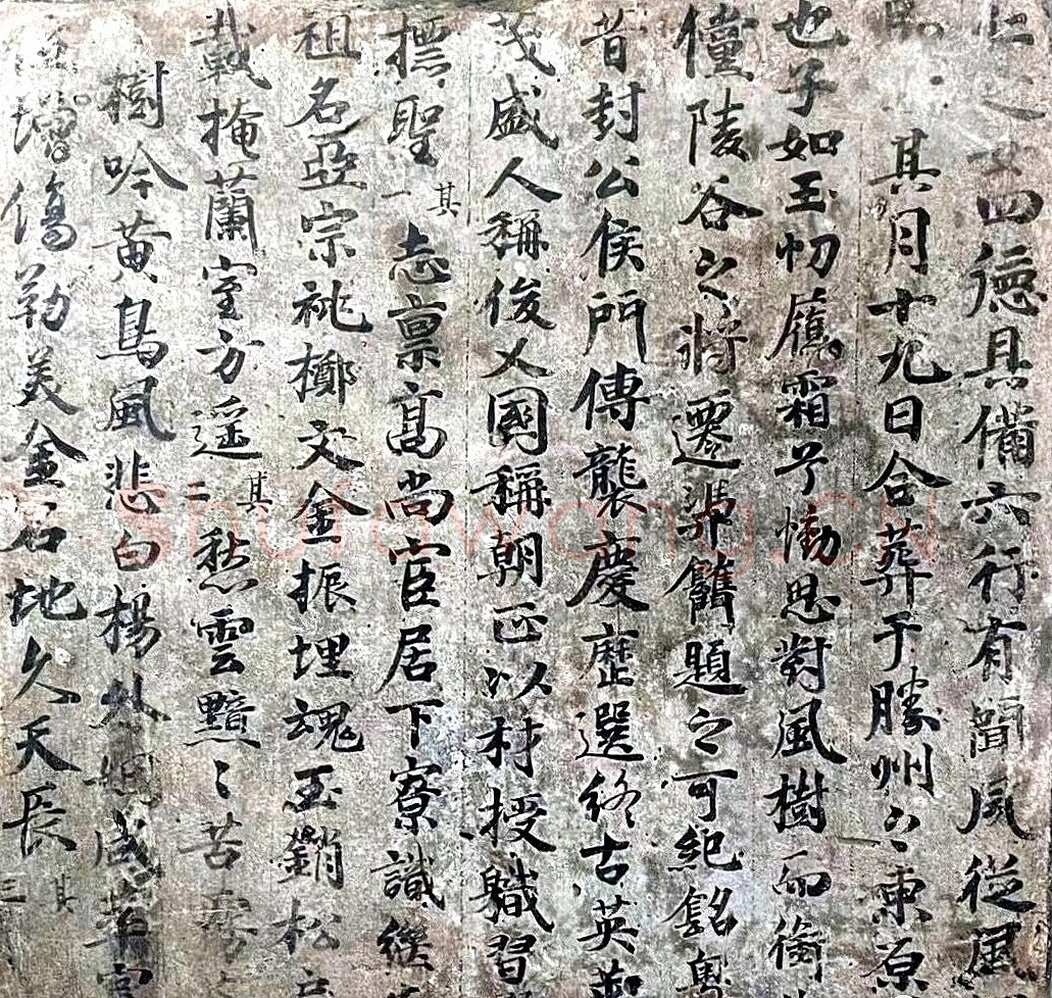 四德具備六行有聞夙從風
其月十九日合葬于勝州之東原
也子如玉切膺霜予慟思對風樹而銜
僮陵谷之將遷憑鐫題之可紀銘
昔封公侯門傳襲慶歷選終古英
茂盛人稱俊乂國稱朝匹以材授職習
摽聖其一志禀高尚官居下寮識
祖名亞宗祧擲文金振埋魂玉銷松
載掩蘭室方遥其二愁雲黯〻苦
樹吟黄鳥風悲白楊
増傷勒美金石地久天長其三